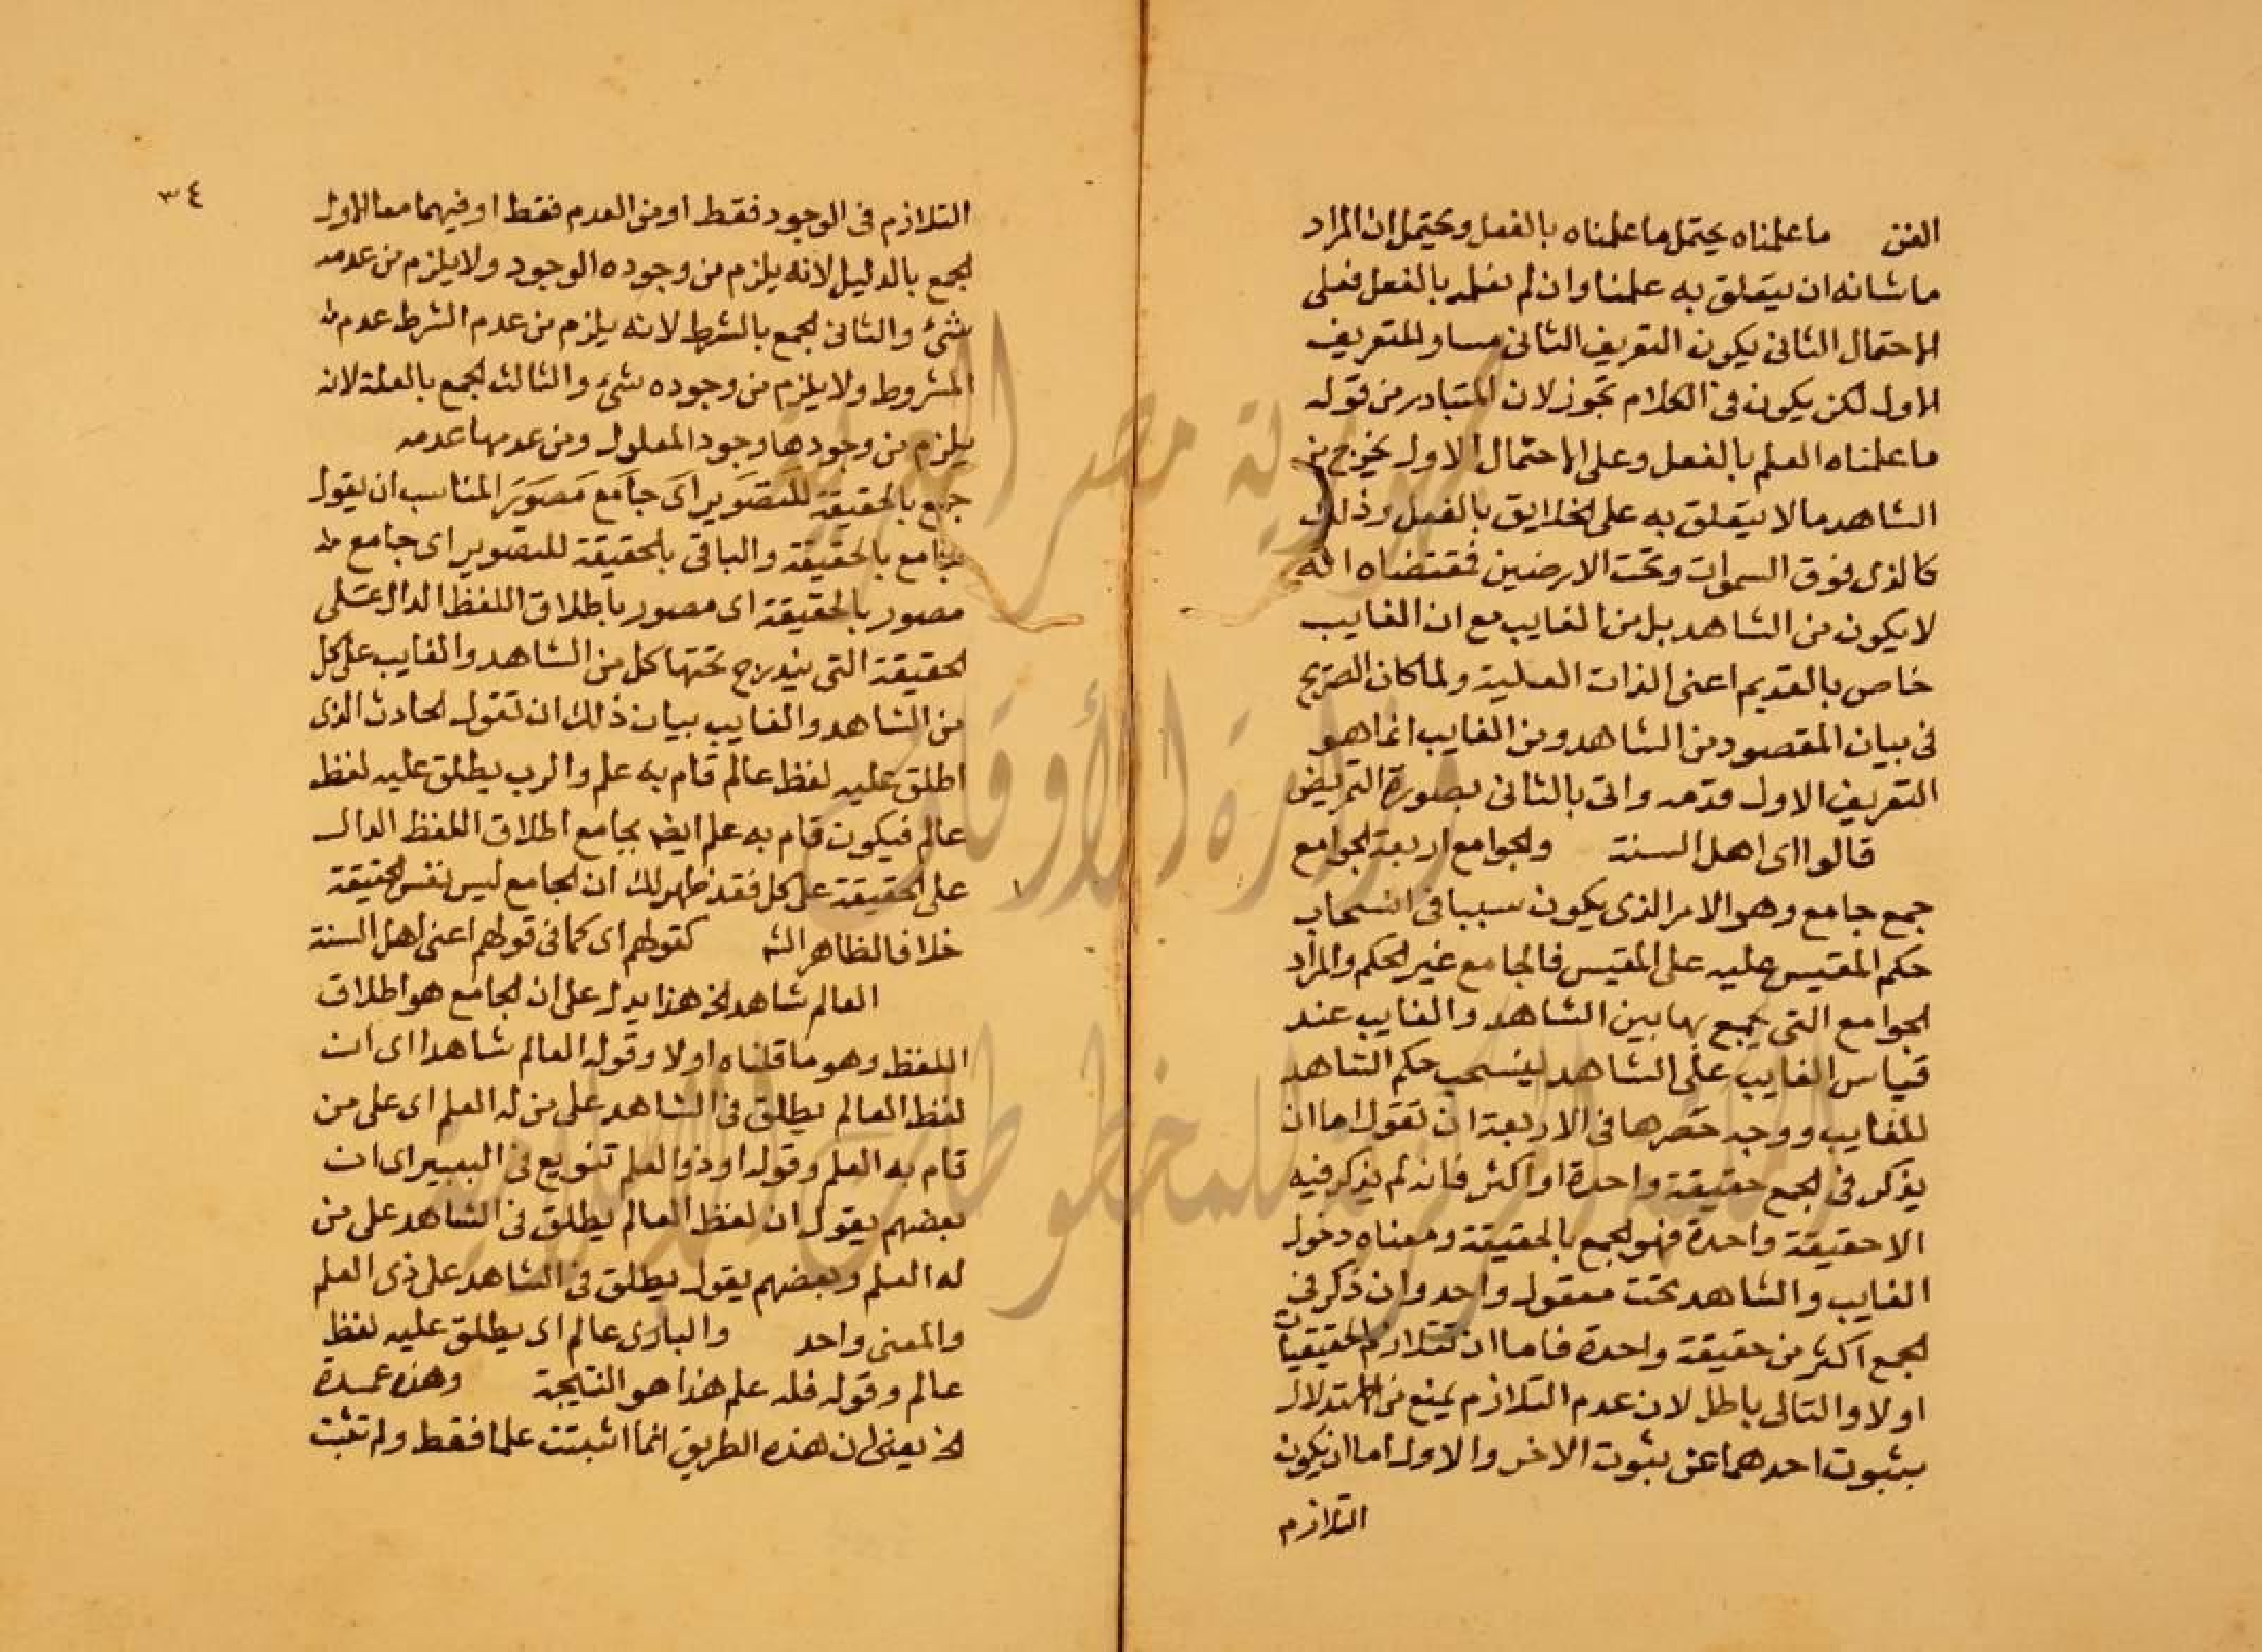 الفن ما علمناه يحتمل ما علمناه بالفعل ويحتمل ان المراد
ما شانه ان يتعلق به علمنا وان لم نعلمه بالفعل فعلى
الاحتمال الثانى يكون التعريف الثانى مساو للتعريف
الاول لكن يكون فى الكلام تجوز لان المتبادر من قوله
ما علمناه العلم بالفعل وعلى الاحتمال الاول يخرج من
الشاهد ما لا يتعلق به على الخلايق بالفعل وذلك
كالذى فوق السموات وتحت الارضين فمقتضاه انه
لا يكون من الشاهد بل من الغايب مع ان الغايب
خاص بالقديم اعنى الذات العلية ولما كان الصريح
فى بيان المقصود من الشاهد ومن الغايب انما هو
التعريف الاول قدمه واتى بالثانى بصورة التمريض
قالوا اى اهل السنة والجوامع اربعة الجوامع
جمع جامع وهو الامر الذى يكون سببا فى انسحاب
حكم المقيس عليه على المقيس فالجامع غير الحكم والمراد
الجوامع التى يجمع بها بين الشاهد والغايب عند
قياس الغايب على الشاهد لينسحب حكم الشاهد
للغايب ووجه حصرها فى الاربعة ان تقول اما ان
يذكر فى الجمع حقيقة واحدة او اكثر فان لم يذكر فيه
الا حقيقة واحدة فهو الجمع بالحقيقة ومعناه دخول
الغايب والشاهد تحت معقول واحد وان ذكر فى
الجمع اكثر من حقيقة واحدة فاما ان تتلازم الحقيقيات
اولا والتالى باطل لان عدم التلازم يمنع من الاستدلال
بثبوت احدهما عن ثبوت الاخر والاول اما ان يكون
التلازم
٣٤
التلازم فى الوجود فقط او من العدم فقط او فيهما معا الاول
الجمع بالدليل لانه يلزم من وجوده الوجود ولا يلزم من عدمه
شئ والثانى الجمع بالشرط لانه يلزم من عدم الشرط عدم
المشروط ولا يلزم من وجوده شئ والثالث الجمع بالعلة لانه
يلزم من وجودها وجود المعلول ومن عدمها عدمه
جمع بالحقيقة للتصوير اى جامع مصور المناسب ان يقول
جامع بالحقيقة والباقى بالحقيقة للتصوير اى جامع
مصور بالحقيقة اى مصور باطلاق اللفظ الدال على
الحقيقة التى يندرج تحتها كل من الشاهد والغايب على كل
من الشاهد والغايب بيان ذلك ان تقول الحادث الذى
اطلق عليه لفظ عالم قام به علم والرب يطلق عليه لفظ
عالم فيكون قام به علم ايضا بجامع اطلاق اللفظ الدال
على الحقيقة على كل فقد ظهر لك ان الجامع ليس نفس الحقيقة
خلافا لظاهر الش كقولهم اى كما فى قولهم اعنى اهل السنة
العالم شاهد الخ هذا يدل على ان الجامع هو اطلاق
اللفظ وهو ما قلناه اولا وقوله العالم شاهدا اى ان
لفظ العالم يطلق فى الشاهد على من له العلم اى على من
قام به العلم وقوله او ذو العلم تنويع فى التعبير اى ان
بعضهم يقول ان لفظ العالم يطلق فى الشاهد على من
له العلم وبعضهم يقول يطلق فى الشاهد على ذى العلم
والمعنى واحد والبارى عالم اى يطلق عليه لفظ
عالم وقوله فله علم هذا هو النتيجة وهذه عمدة
الخ يعنى ان هذه الطريق انما اثبتت علما فقط ولم تثبت